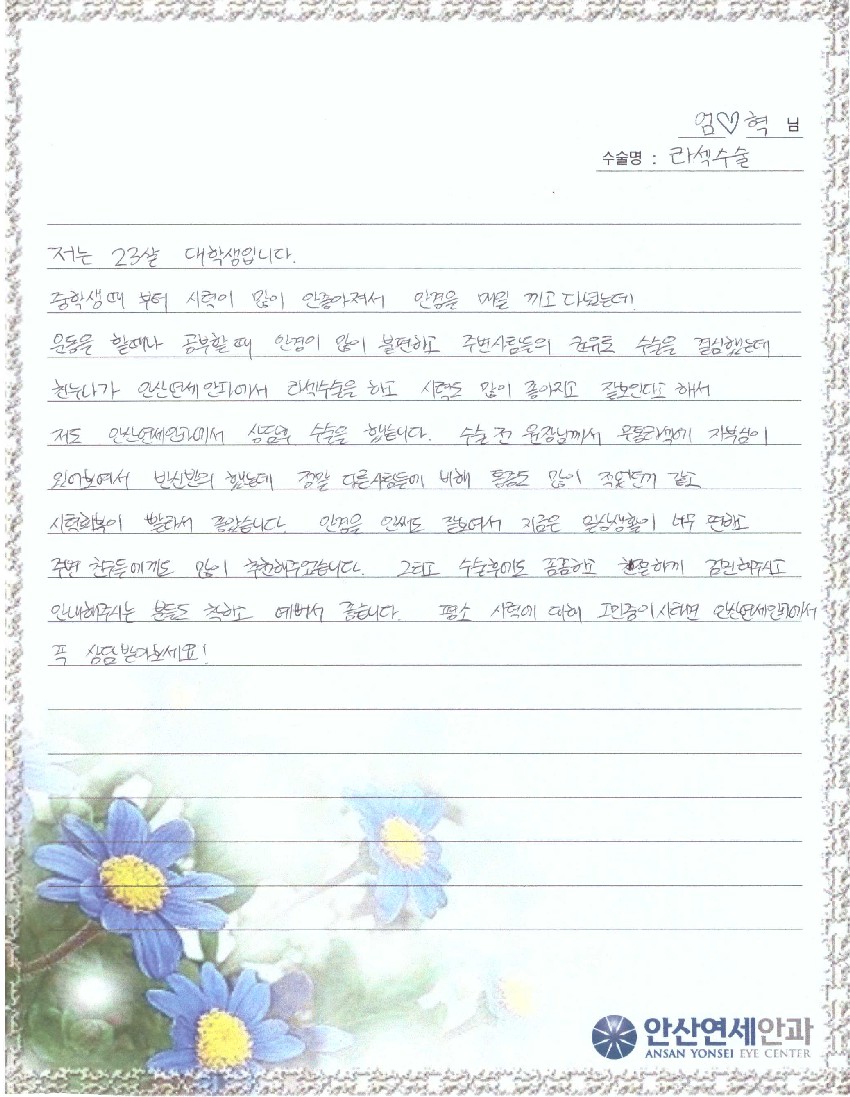 엄♡혁 님
수술명 : 라섹수술
저는 23살 대학생입니다.
중학생때 부터 시력이 많이 안좋아져서 안경을 매일 끼고 다녔는데!
운동을 할때나 공부할 때 안경이 많이 불편하고 주변사람들의 권유로 수술을 결심했는데
친누나가 안산연세안과에서 라섹수술을 하고 시력도 많이 좋아지고 잘보인다고 해서
저도 안산연세안과에서 상담후 수술을 했습니다. 수술 전 원장님께서 무통라섹에 자부심이
있어보여서 반신반의 했는데 정말 다른사람들에 비해 통증도 많이 적었던거 같고
시력회복이 빨라서 좋았습니다. 안경을 안써도 잘보여서 지금은 일상생활이 너무 편하고
주변 친구들에게도 많이 추천해주었습니다. 그리고 수술후에도 꼼꼼하고 친절하게 검진해주시고
안내해주시는 분들도 착하고 예뻐서 좋습니다. 평소 시력에 대해 고민중이시라면 안산연세안과에서
꼭 상담받아보세요!
안산연세안과
ANSAN YONSEI EYE CENTER